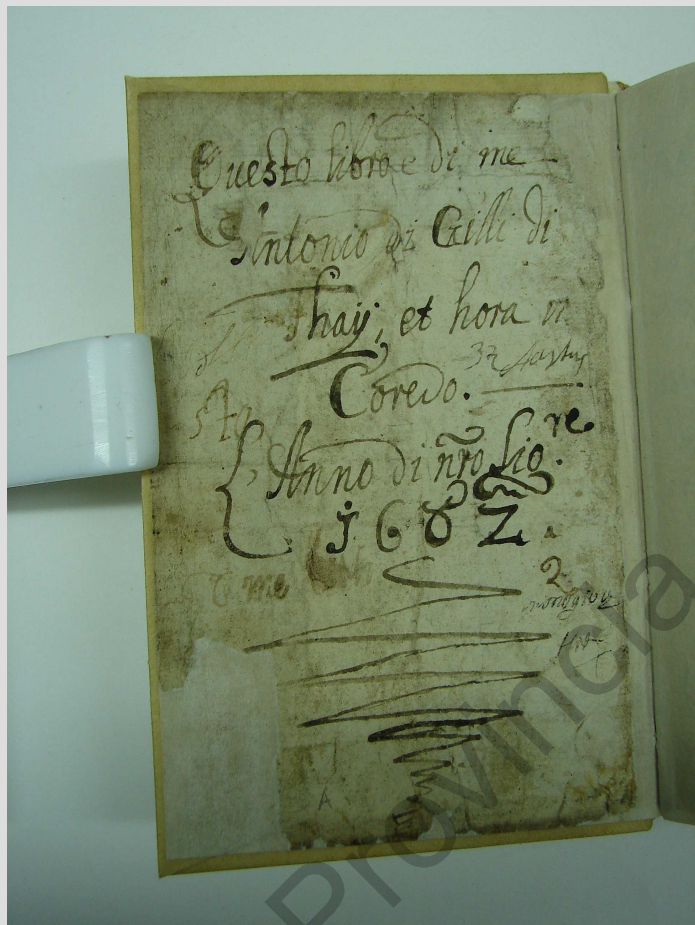 Questo libro è di me
Antonio di Gilli di
Thaÿ; et hora in
32
Coredo.
Anno di nr̃o Sig.re
1682.
2
A
Provincia